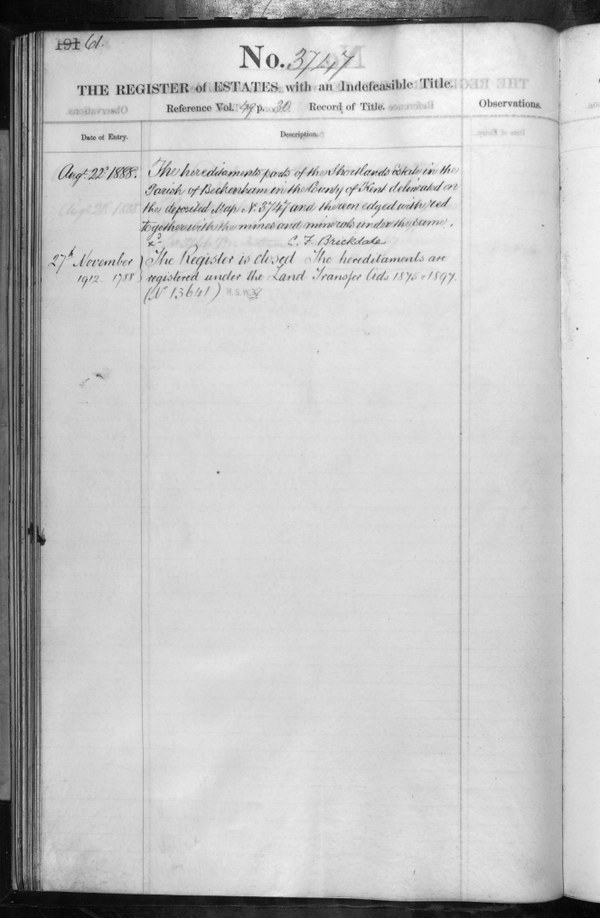 191 61.
No. 3747
THE REGISTER of ESTATES with an Indefeasible Title.
Reference Vol. 49 p. 30. Record of Title.
Observations.
Date of Entry.
Description.
Augt. 22d 1888.
The hereditaments parts of the Shortlands Estate in the
Parish of Beckenham in the County of Kent delineated on
the deposited Map No. 3747 and thereon edged with red
together with the mines and minerals under the same.
C. F. Brickdale
27th November
1912. 1788
The Register is closed The hereditaments are
registered under the Land Transfer Acts 1875 & 1897.
(No 13641)